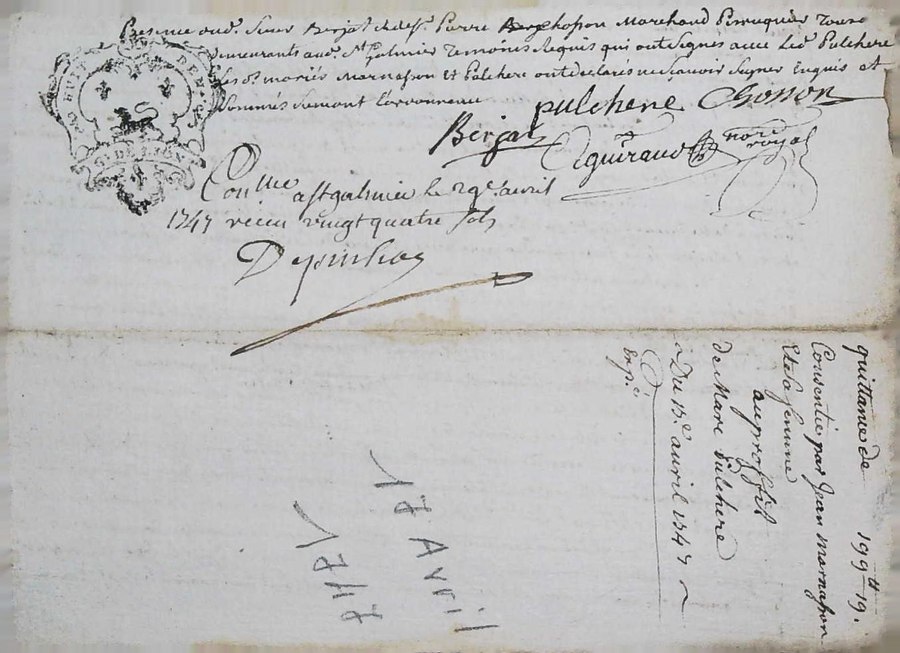 Presence aud. Sieur Berjat & de Sr. Pierre Chosson Marchand Perruquier Tous
demeurants aud. St. galmier Temoins Requis qui ont Signés avec Led. Pulchere
mariés Marnasson Et Pulchere ont declarés ne Scavoir Signer Enquis et
Sommés Suivant L'ordonnance
pulchene Chosson
Berjat
Eguiraud nore royal
DE LYON
Con.lle a St galmier le 29e avril
1747 receu vingt quatre sols
quittance de 199tt 19s.
Consentie par Jean marnasson
Et Sa femme
au proffit
de Marc Pulchere
Du 13e. avril 1747
Exp.é
17 Avril
1747